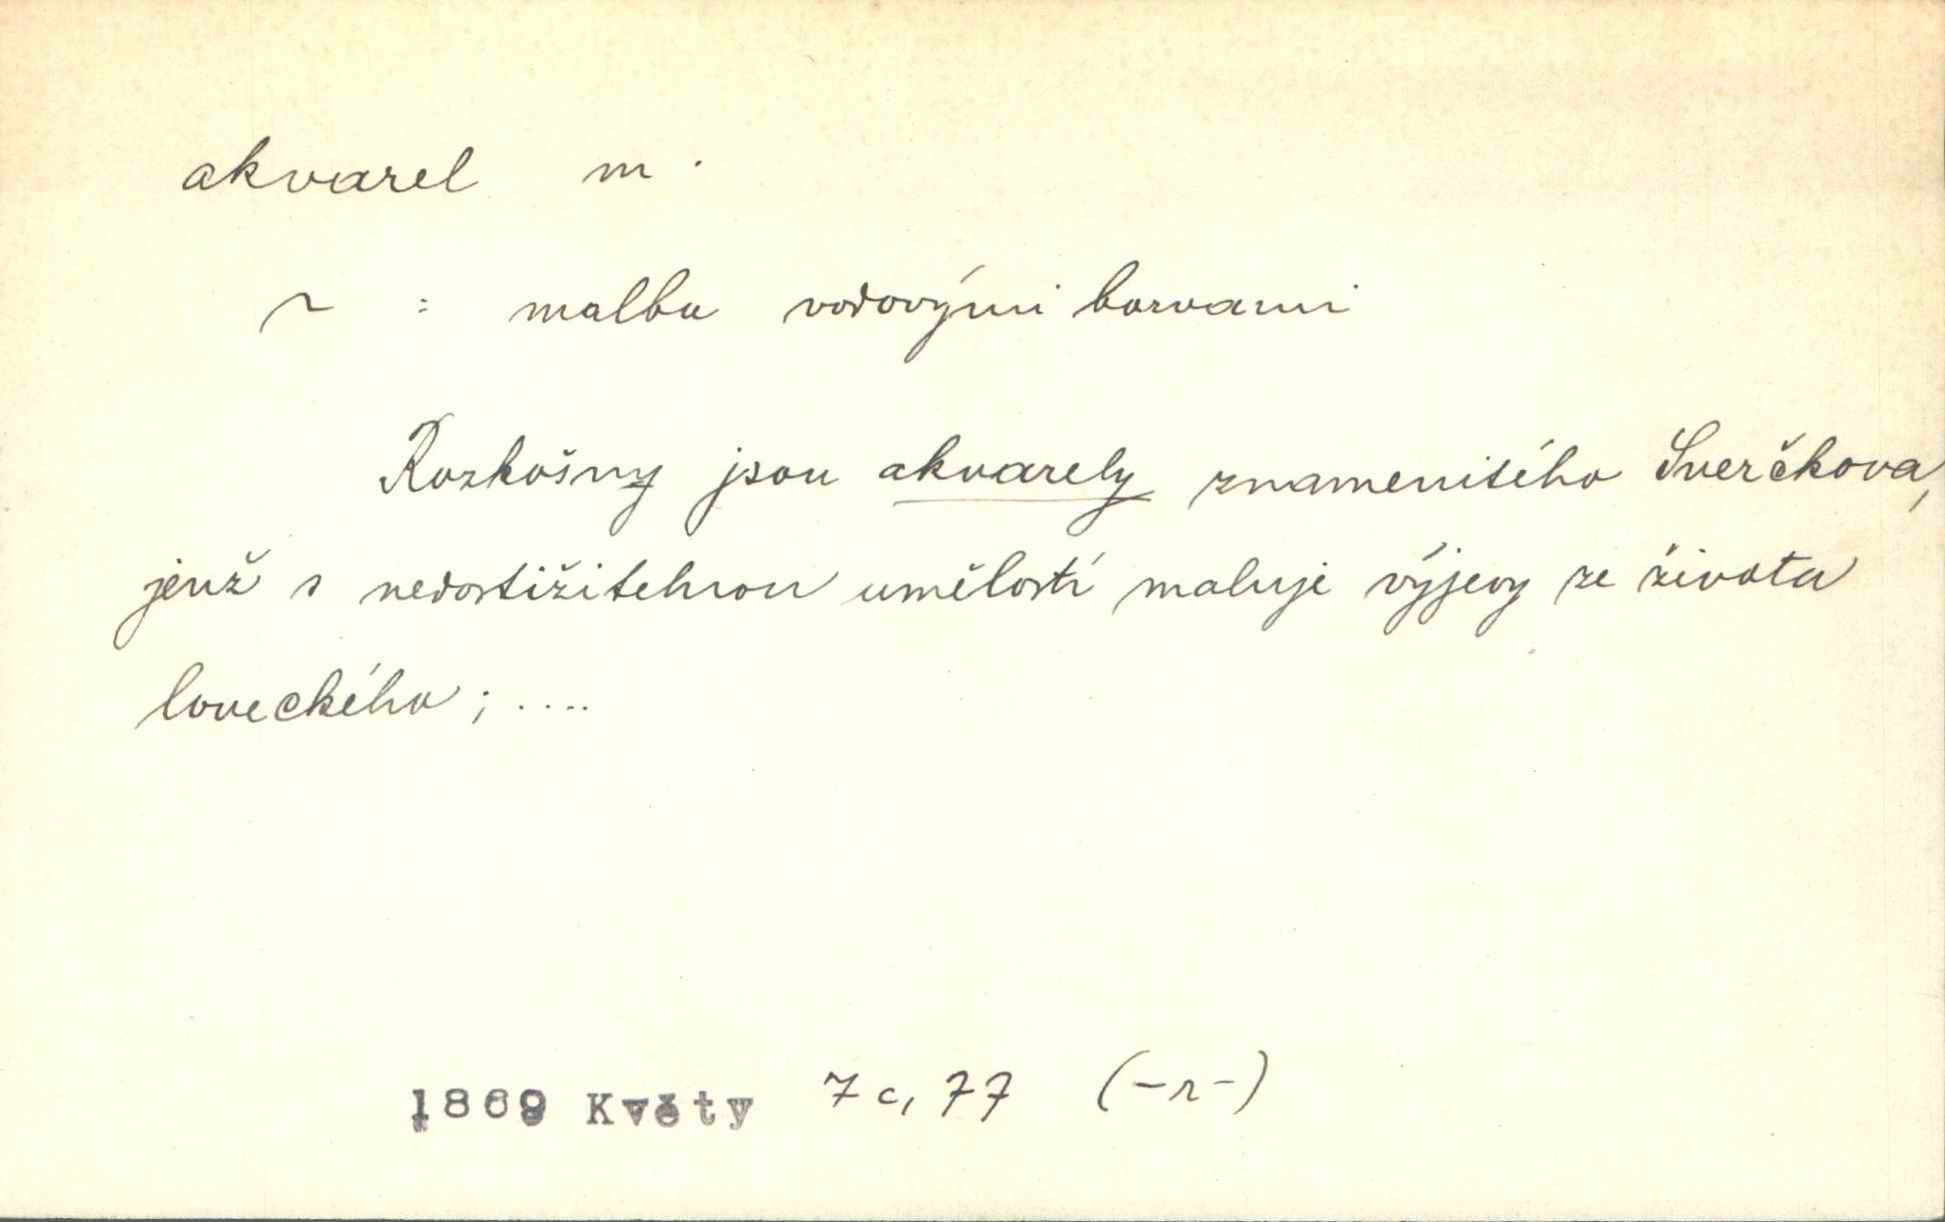 akvarel m.
~ : malba vodovými barvami
Rozkošny jsou akvarely znamenitého Sverčkova,
jenž s nedostižitelnou umělostí maluje výjevy ze života
loveckého; ....
1869 Květy 7c, 77 (-r-)